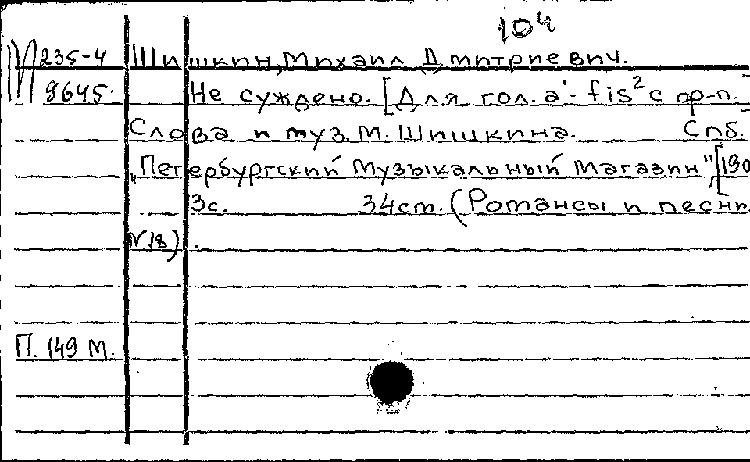 104
М 235-4 Шишкин, Михаил Дмитриевич.
9645 Не суждено. [Для гол. a¹-fis² с фр-п.
Слова и муз. М. Шишкина. Спб.
"Петербургский Музыкальный Магазин", [190
3с. 34см. (Романсы и песни
№18).
П. 149 М.